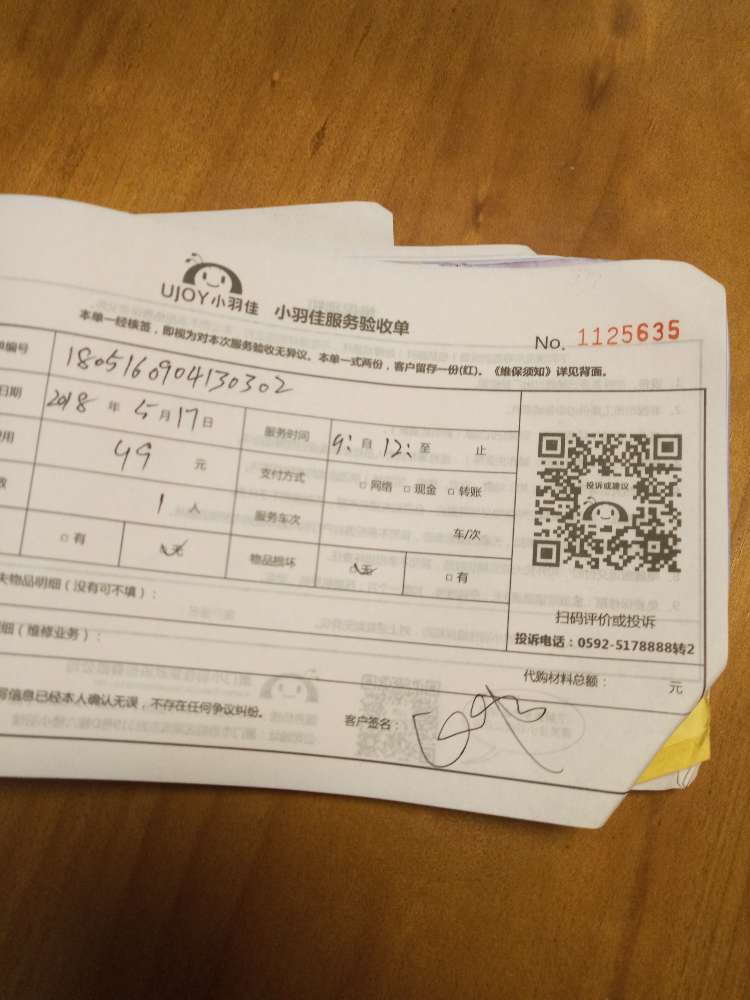 UJOY小羽佳 小羽佳服务验收单
No. 1125635
本单一经核签，即视为对本次服务验收无异议。本单一式两份，客户留存一份(红)。《维保须知》详见背面。
编号 1805160904130302
日期 2018 年 5 月 17 日 服务时间 9: 自 12: 至 止
用 49 元 支付方式 □网络 □现金 □转账
数 1 人 服务车次 车/次
□有 无 物品损坏 无 □有
投诉或建议
扫码评价或投诉
投诉电话：0592-5178888转2
失物品明细（没有可不填）：
细（维修业务）：
代购材料总额： 元
信息已经本人确认无误，不存在任何争议纠纷。
客户签名：